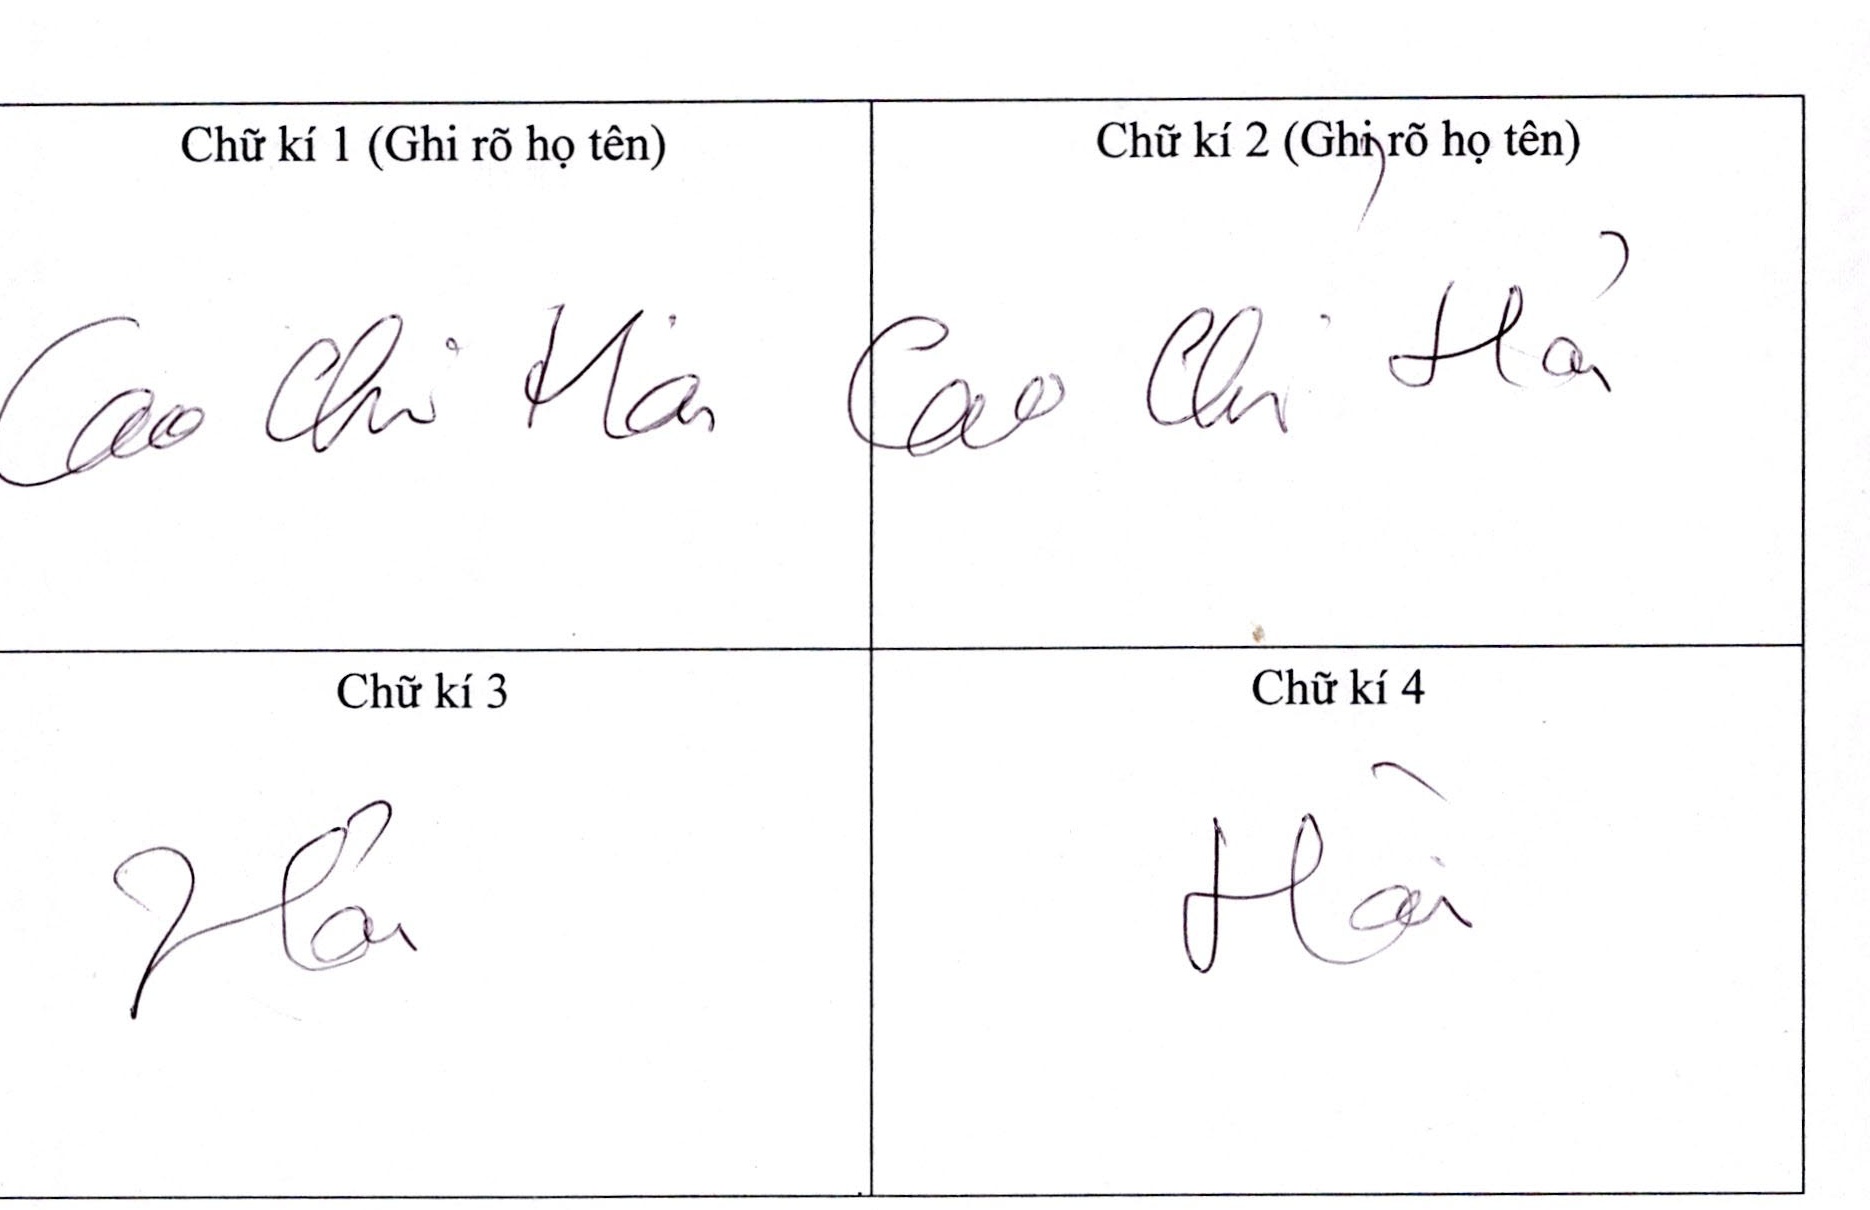 Chữ kí 1 (Ghi rõ họ tên)
Chữ kí 2 (Ghi rõ họ tên)
Cao Chi Hải
Cao Chí Hải
Chữ kí 3
Chữ kí 4
Hải
Hải